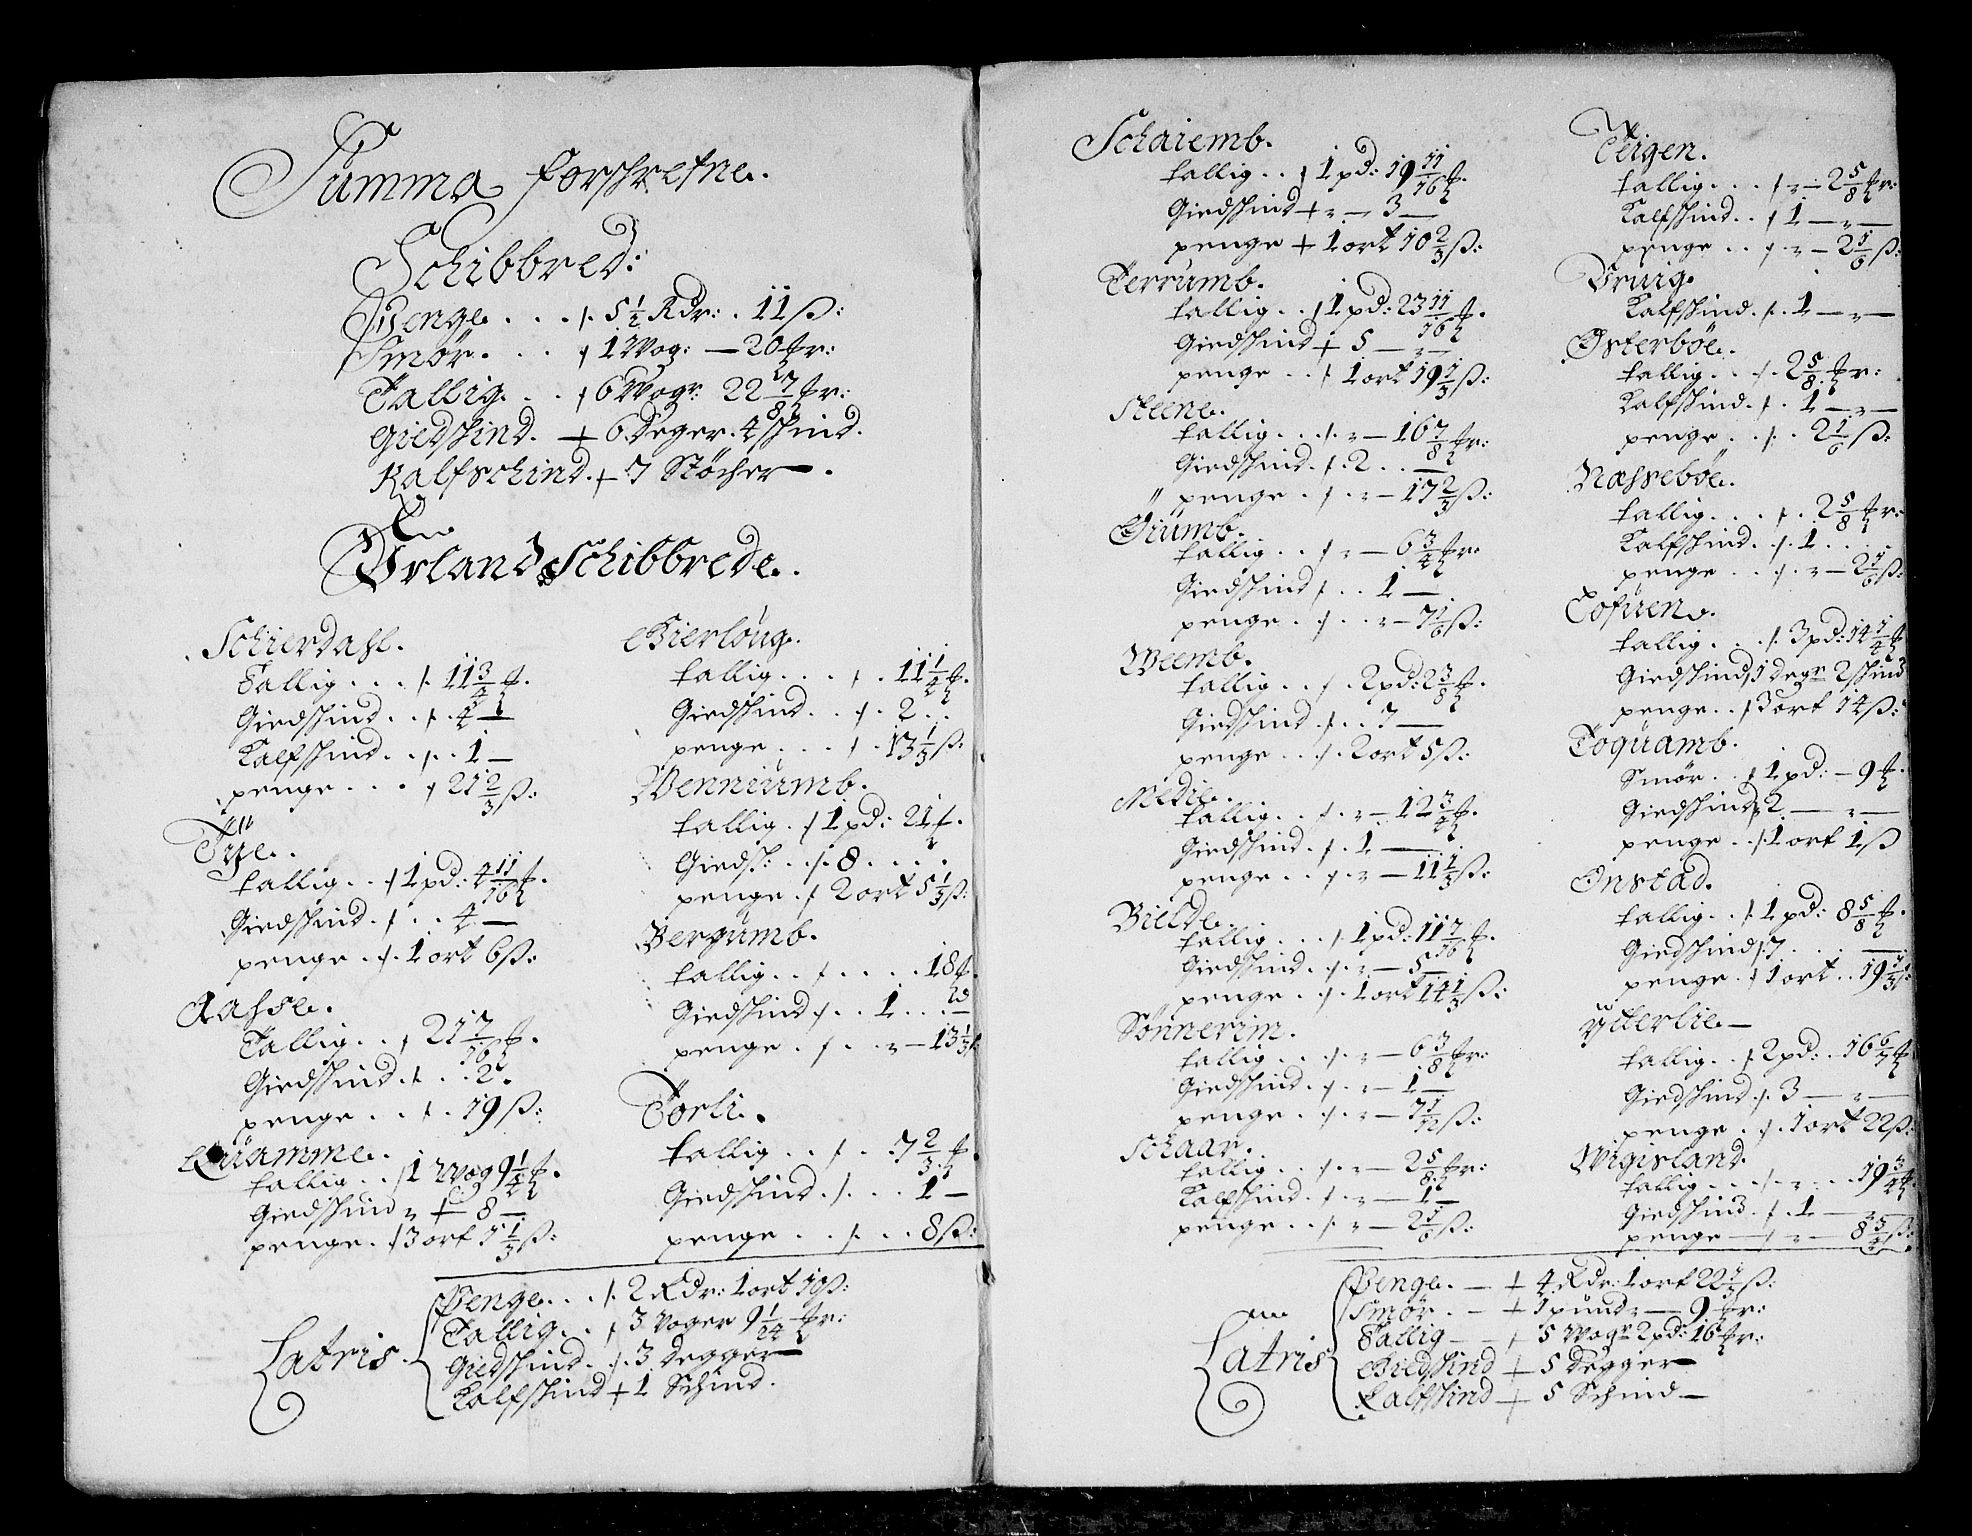 Summa forschrefne.
Schibbred:
Penge . . . /. 5 1/2 Rdr: . 11 ß:
Smør . . . / 1 Wog: — 20 ℔r:
Tallig . . . / 6 Wogr. 22 7/8 ℔r:
Giedschind . + 6 Deger. 4 schind.
Kalfschind . + 7 Støcher —.
Urland Schibbrede.
Schierdahl.
Tallig . . . /. 11 3/4 ℔.
Giedschind . . /. 4 —
Kalfschind . . /. . 1 —
penge . . . / 21 2/3 ß:
Tye.
tallig . . / 1 pd: 4 11/16 ℔.
Giedschind . / . . 4 —
penge . /. 1 ort 6 ß:
Aahse.
Tallig . . / 21 7/16 ℔.
Giedschind . /. . . 2.
penge . . /. . 19 ß:
Quamme.
tallig . . / 1 Wog 9 1/4 ℔.
Giedschind + 8 —
penge . / 3 ort 1 1/3 ß:
Bierlöug.
tallig . . . / . 11 1/4 ℔.
Giedschind . . /. 2 . .
penge . . . / . 13 1/3 ß:
Wenniumb.
tallig . / 1 pd: 21 ℔.
Giedsch: . . /. 8 . . . .
penge . / 2 ort 5 1/3 ß:
Bergumb.
tallig . . / . . . . 18 ℔.
Giedschind /. . . 1 . . . —
penge . / . . — 13 1/3 ß:
Torli.
tallig . . / . . 7 2/3 ℔.
Giedschind . /. . . . 1 —
penge . . /. . . 8 ß:
Latris.
Penge . . . /. 2 Rdr: 1 ort 10 ß:
Tallig . . / 3 Woger 9 1/24 ℔r:
Giedschind . /. 3 Degger
Kalfschind + 1 Schind.
Schaiemb.
tallig . . / 1 pd: 19 11/16 ℔.
Giedschind + — 3 —
penge + 1 ort 10 2/3 ß:
Terrumb.
tallig . . / 1 pd: 23 11/16 ℔.
Giedschind + 5 —
penge . . / 1 ort 19 1/3 ß:
Steene.
tallig . . . /. — 16 7/8 ℔r:
Giedschind . /. 2 . . —
penge . /. — 17 2/3 ß:
Øiumb.
tallig . . / — 6 3/4 ℔r:
Giedschind / . . 1 —
penge . /. . . — 7 1/6 ß:
Weemb.
tallig . . / . 2 pd: 2 3/8 ℔.
Giedschind /. . 7 —
penge . . /. 2 ort 5 ß:
Medie.
tallig . . /. — 12 3/4 ℔.
Giedschind . /. 1 —
penge . . / — 11 1/3 ß:
Bielde.
tallig . . . /. 1 pd: 11 7/16 ℔.
Giedschind . /. — 5 —
penge . . /. 1 ort 14 1/3 ß:
Sönnerim.
tallig . . . /. — 6 3/8 ℔r:
Giedschind . /. — 1 —
penge . . /. — 7 1/12 ß:
Schaar.
tallig . . . /. — 2 5/8 ℔r:
Kalfschind . /. — 1 —
penge . . /. — 2 1/6 ß:
Teigen.
tallig . . . / — 2 5/8 ℔r:
Kalfschind . . / 1 —
penge . . /. — 2 1/6 ß:
Fruig.
Kalfschind . /. 1 —
Østerböe.
tallig . . . /. 2 5/8 ℔r:
Kalfschind . /. 1 —
penge . . /. . 2 1/6 ß:
Nassebøe.
tallig . . . / . 2 5/8 ℔r:
Kalfschind . /. 1 . . . .
penge . . /. — 2 1/6 ß:
Tofuen.
tallig . . . /. 3 pd: 14 1/4 ℔
Giedschind / 1 Degr 2 schind
penge . . / 3 ort 14 ß:
Toquamb.
Smør . . / 1 pd: — 9 ℔.
Giedschind / 2 —
penge . / 1 ort 1 ß
Onstad.
tallig . . /. 1 pd: 8 5/8 ℔.
Giedschind / 7 . . . —
penge . / 1 ort . . 19 1/3 ß:
Ytterlie —
tallig . . /. 2 pd: . 16 6/7 ℔
Giedschind . /. 3 —
penge . /. 1 ort 22 ß:
Wigisland.
tallig . . . /. . . . 19 3/4 ℔
Giedschind . /. 1 —
penge — / — 8 3/4 ß:
Latris
Penge . — + 4 Rdr: 1 ort 22 1/3 ß:
Smør . — + 1 pund — 9 ℔r:
Tallig — / 5 Wogr 2 pd: 16 ℔r:
Giedschind + 5 Degger
Kalfschind + 5 Schind —